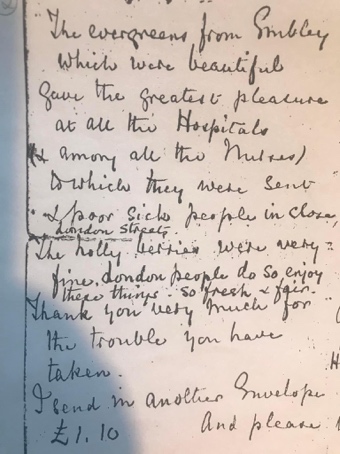 The evergreens from Embley
which were beautiful
gave the greatest pleasure
at all the Hospitals
(& among all the Nurses)
to which they were sent
& poor sick people in close,
London Streets.
The holly berries were very
fine. London people do so enjoy
these things - so fresh & fair.
Thank you very much for
the trouble you have
taken.
I send in another Envelope
£1.10 And please